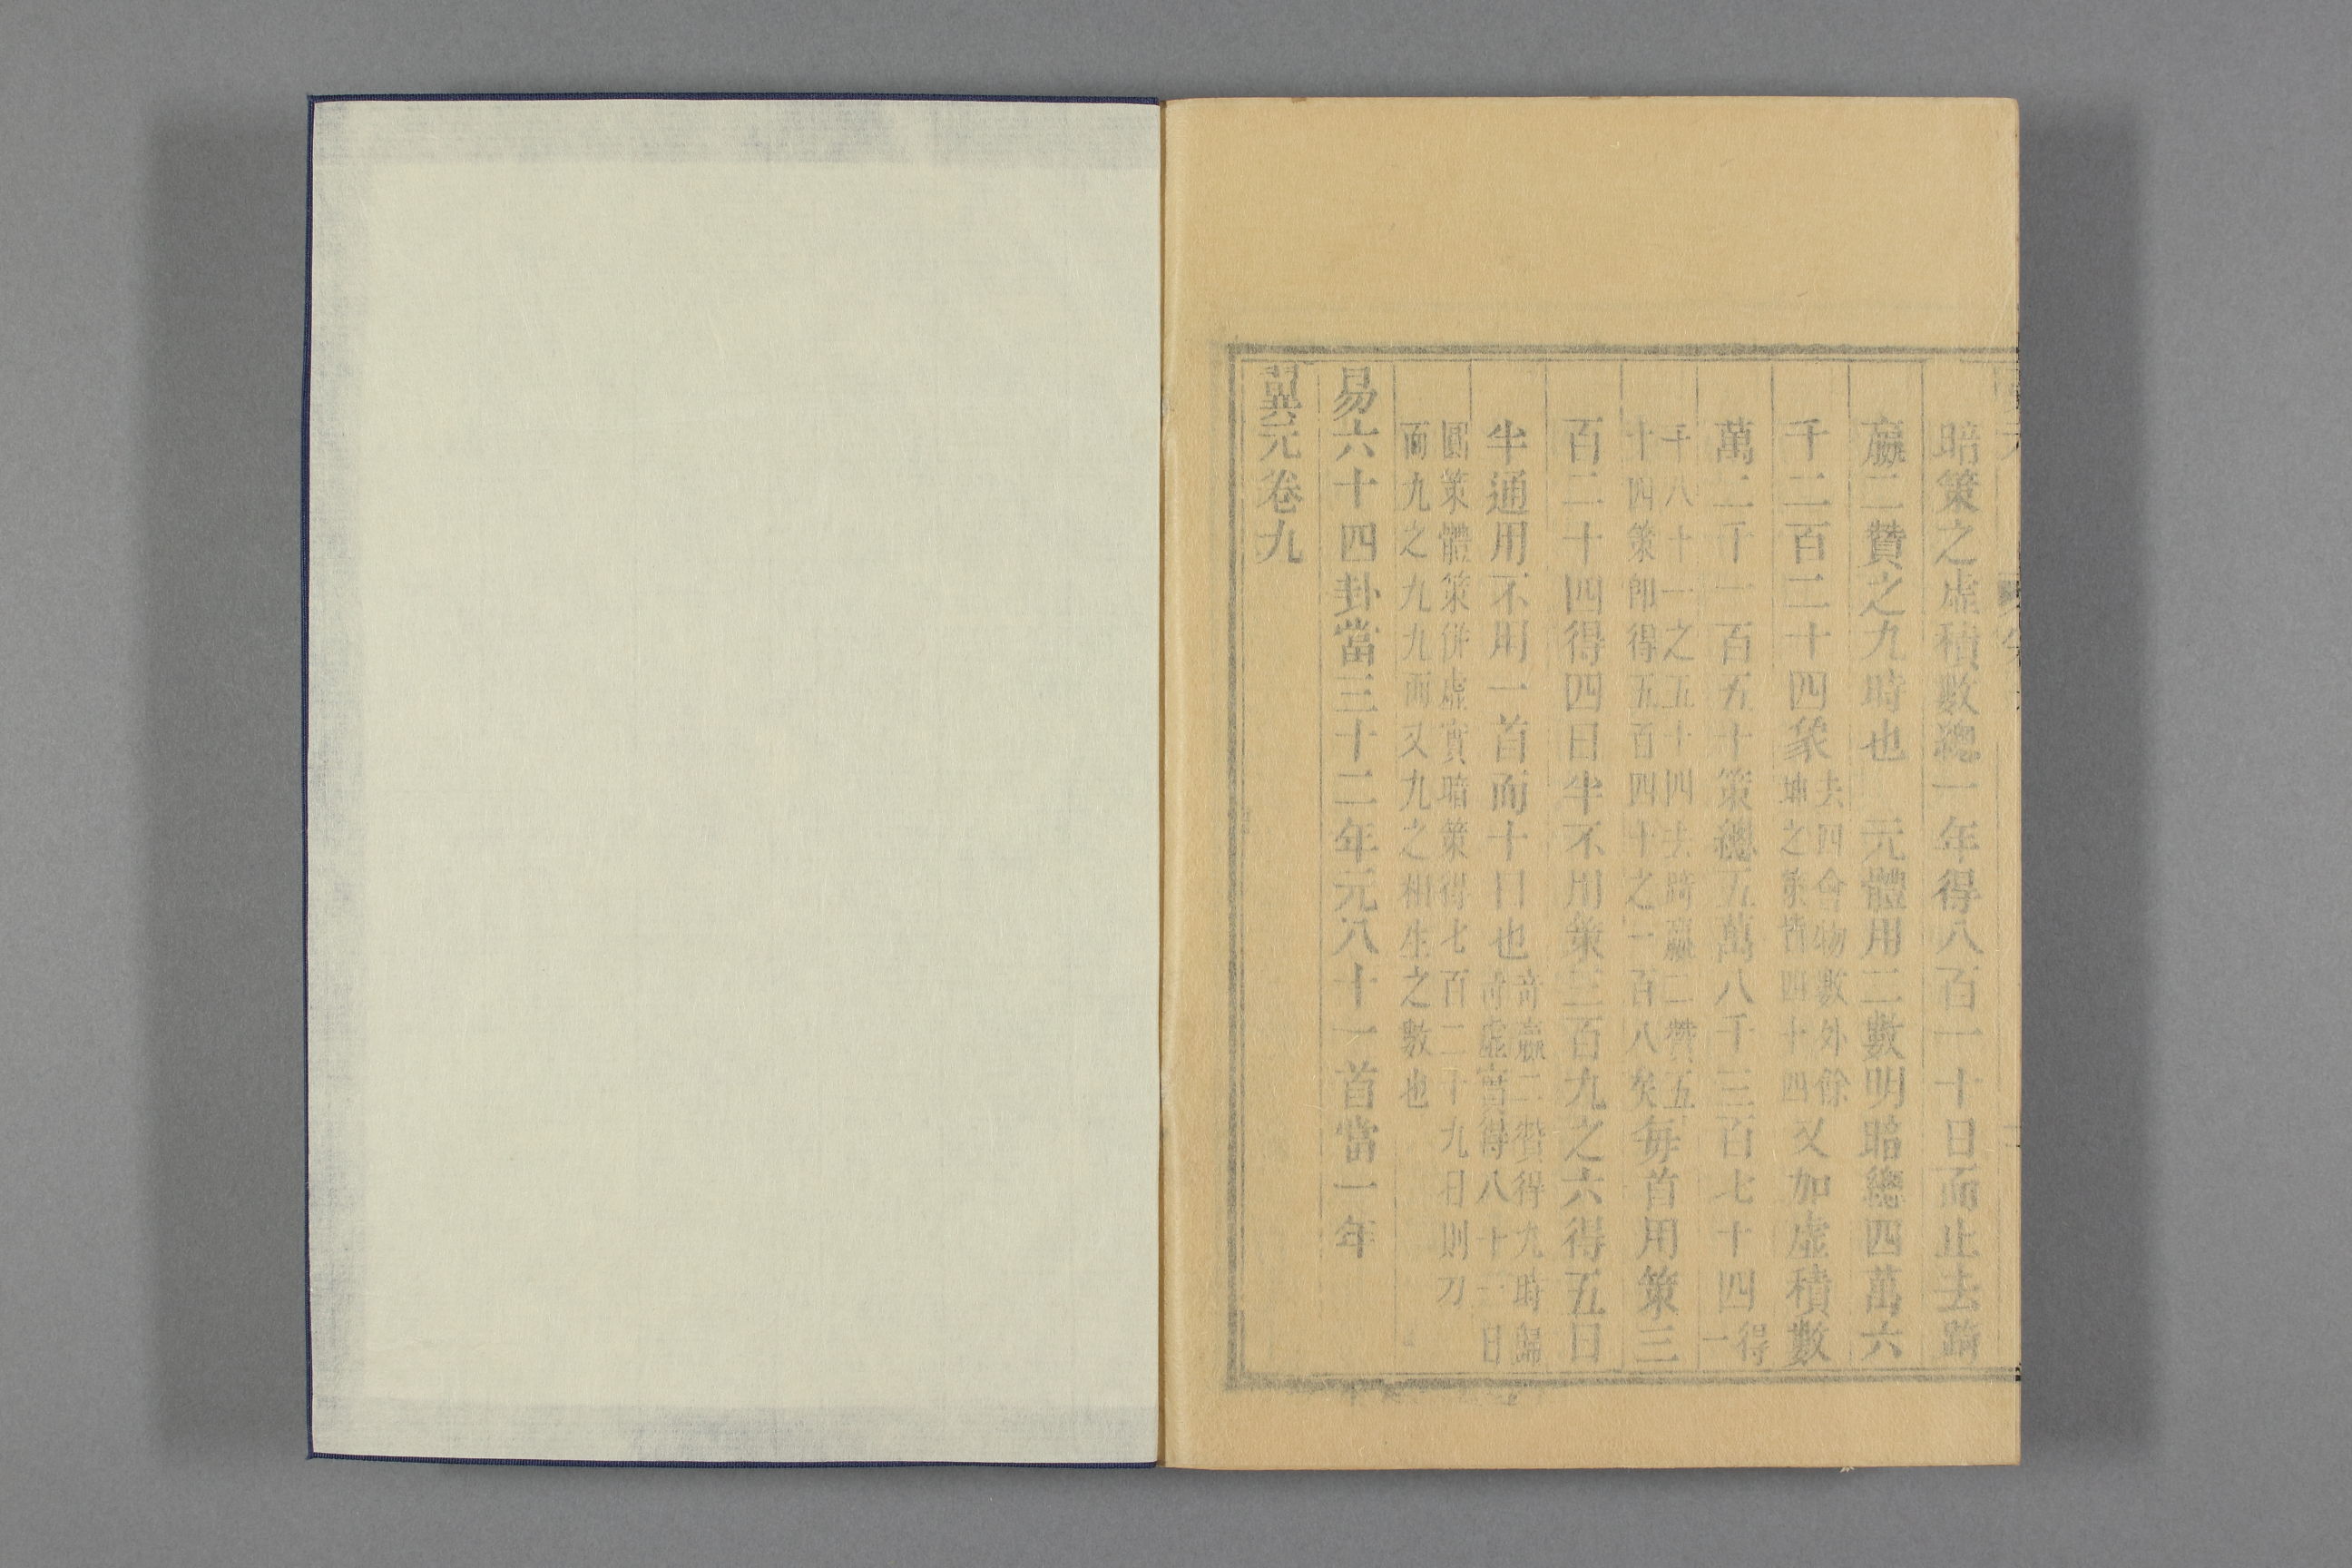 暗策之虛積數總一年得八百一十日而止去踦
嬴二贊之九時也　元體用二數明暗總四萬六
千二百二十四象去四會物數外餘坤之策皆四十四又加虛積數
萬二千一百五十策總五萬八千三百七十四得一
千八十一之五十四去踦嬴二贊五十四策卽得五百四十之一百八矣每首用策三
百二十四得四日半不用策三百九之六得五日
半通用不用一首而十日也奇嬴二贊得九時歸奇虛實得八十一日
圓策體策併虛實暗策得七百二十九日則刀
而九之九九而又九之相生之數也
易六十四卦當三十二年元八十一首當一年
翼元卷九